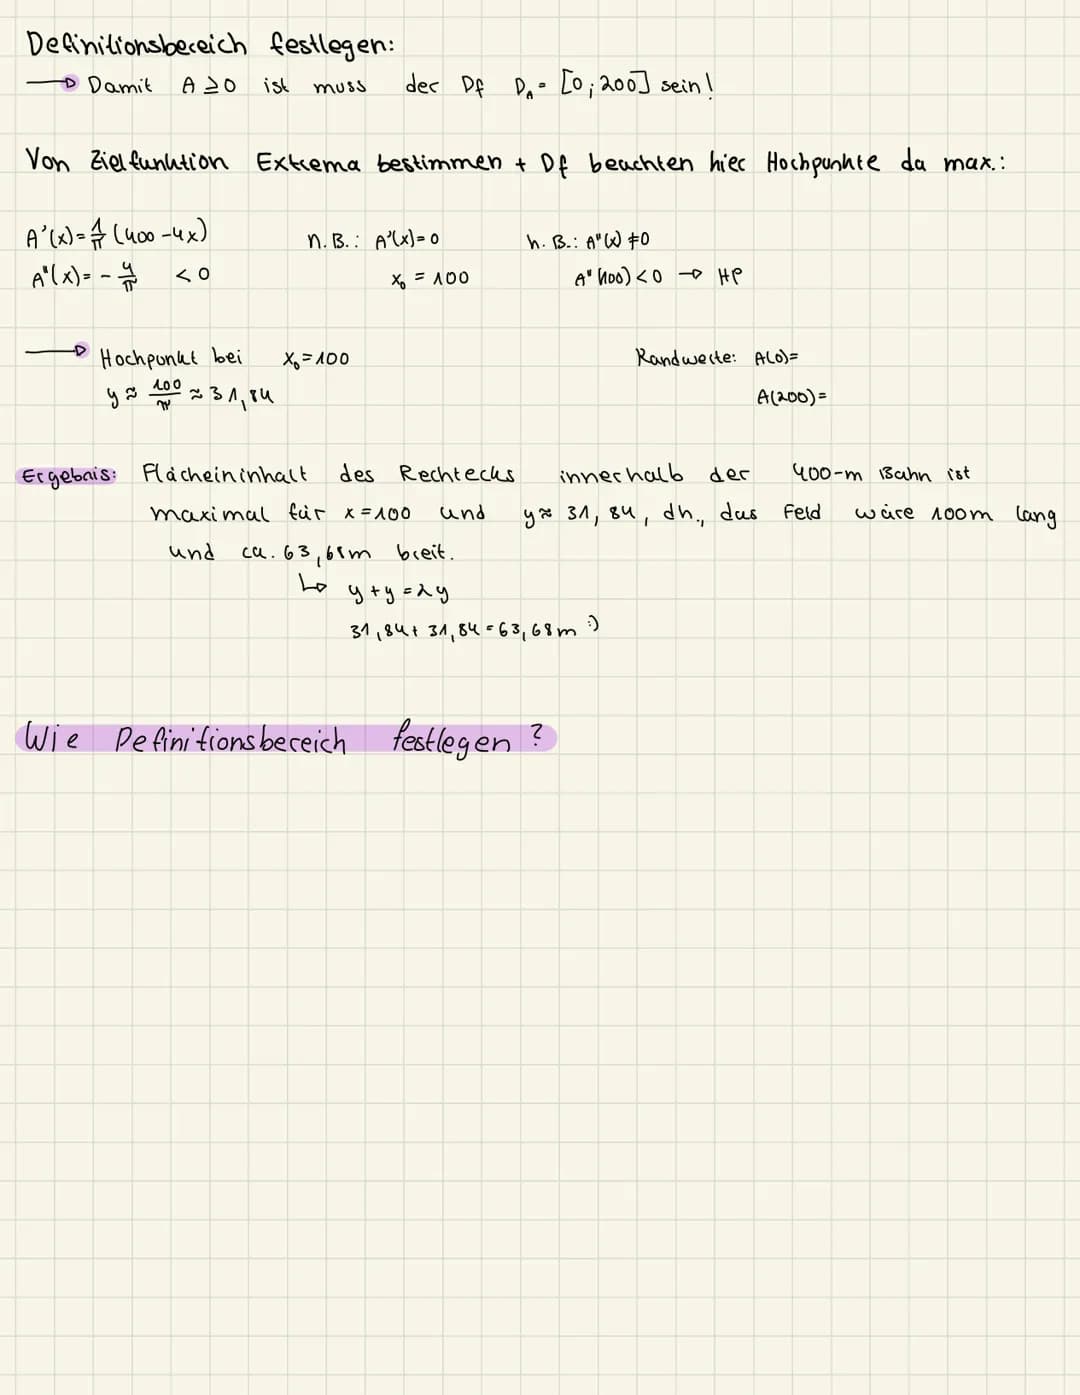 Definitionsbereich festlegen:
→ Damit A ≥ 0 ist muss der Df D_A = [0 ; 200] sein!
Von Zielfunktion Extrema bestimmen + Df beachten hier Hochpunkte da max.:
A'(x) = 1/π (400 - 4x) n. B.: A'(x) = 0 h. B.: A''(x) ≠ 0
A''(x) = - 4/π < 0 x₀ = 100 A''(100) < 0 → HP
→ Hochpunkt bei x₀ = 100 Randwerte: A(0) =
y ≈ 100/π ≈ 31,84 A(200) =
Ergebnis: Flächeininhalt des Rechtecks innerhalb der 400-m Bahn ist
maximal für x = 100 und y ≈ 31, 84, dh., das Feld wäre 100m lang
und ca. 63,68m breit.
↳ y + y = 2y
31,84 + 31,84 = 63,68m :)
Wie Definitionsbereich festlegen ?